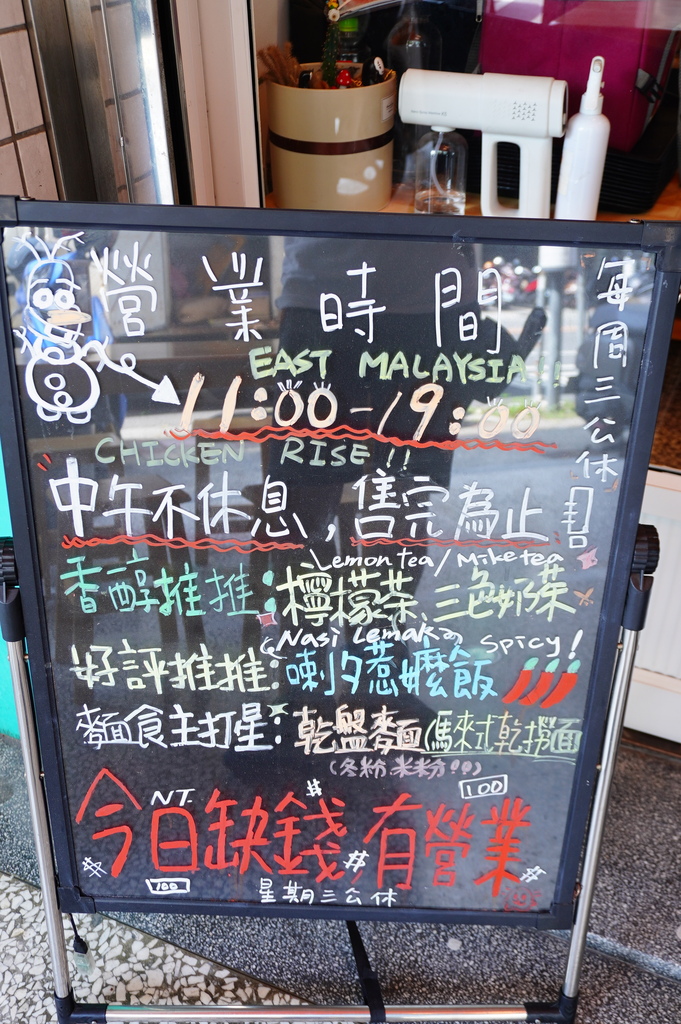 營業時間
每周三公休日
EAST MALAYSIA!!
11:00-19:00
CHICKEN RISE!!
中午不休息,售完為止
Lemon tea/Mike tea
香醇推推:檸檬茶、三色奶茶
(Nasi Lemak) spicy!
好評推推:喇夕惹嬤飯
麵食主打星:乾盤麵(馬來式乾撈面)
(冬粉米粉!!)
NT. # 100
今日缺錢有營業
# 100 # #
星期三公休